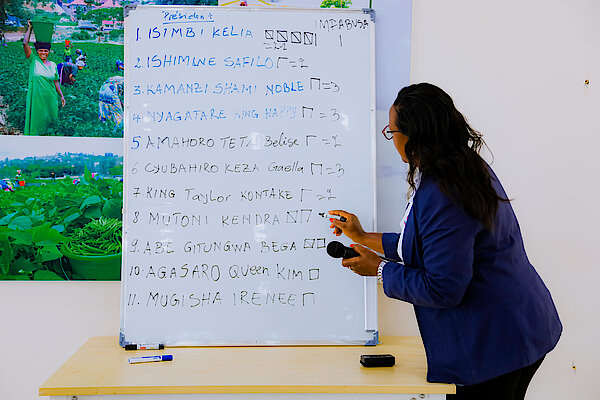 Président
IMPABUSA
1. ISIMBI KELIA I
=21
2. ISHIMWE SAFILO =2
3. KAMANZI SHAMI NOBLE =3
4. NYAGATARE KING HAPPY =3
5 AMAHORO TETA Belise =2
6. CYUBAHIRO KEZA Gaella =3
7. KING Taylor KONTAKE =2
8 MUTONI KENDRA
9. ABE GITUNGWA BEGA
10. AGASARO Queen KIM
11. MUGISHA IRENEE